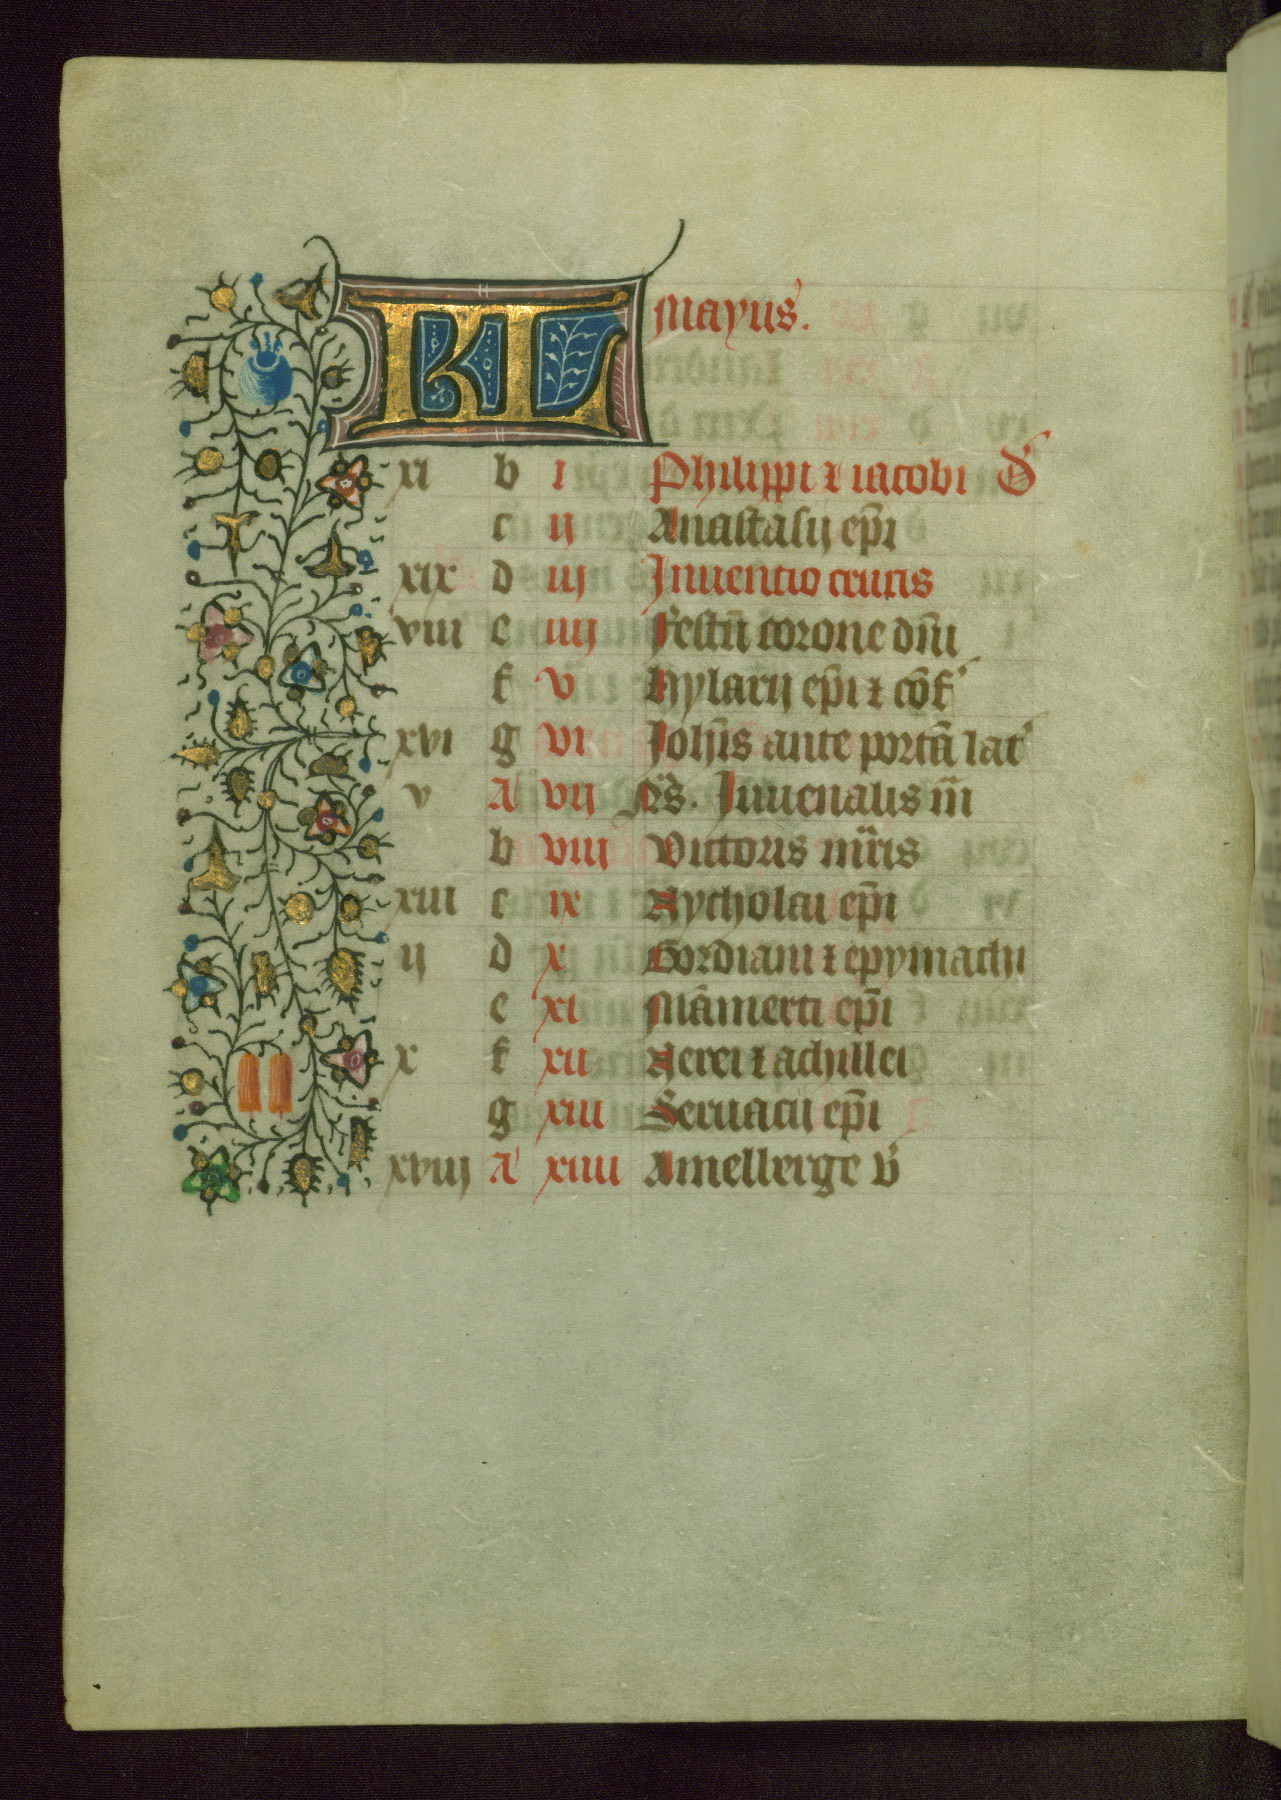 KL Mayus.
xi b i Philippi ⁊ iacobi d
c ij Anastasij ep̄i
xix d iij Inuentio crucis
viii e iiij Festū corone dn̄i
f v hylarij ep̄i ⁊ cōf'
xvi g vi Joh̄is ante portā lat'
v A vij Ns̄. Juuenalis m̄
b viii Victoris mr̄is
xiii c ix Nycholai ep̄i
ij d x Gordiani ⁊ epymachi
e xi Māmerti ep̄i
x f xii Nerei ⁊ achillei
g xiii Seruacii ep̄i
xviij A xiiii Amelberge v̄